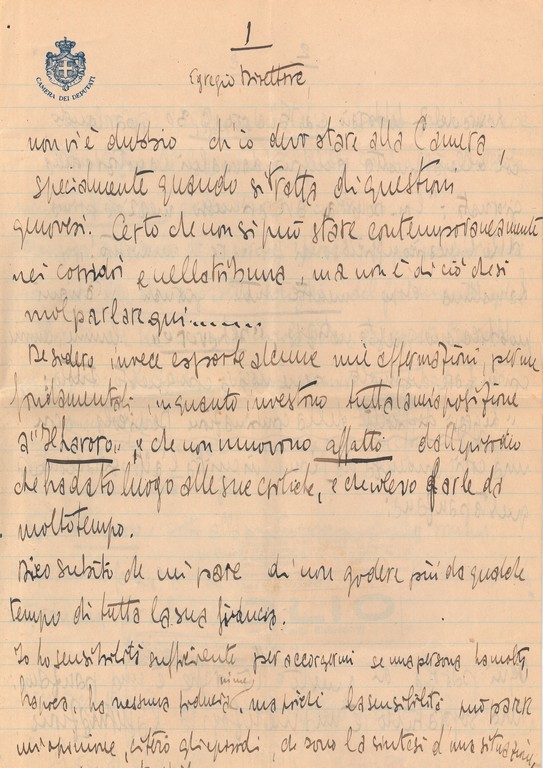 1
CAMERA DEI DEPUTATI
Egregio Direttore,
non vi è dubbio ch'io devo stare alla Camera,
specialmente quando si tratta di questioni
genovesi. Certo che non si può stare contemporaneamente
nei corridoi e nella tribuna, ma non è di ciò che si
vuol parlar qui........
Desidero invece esporle alcune mie affermazioni, per me
fondamentali, in quanto investono tutta la mia posizione
a "Il Lavoro", e che non muovono affatto dall'episodio
che ha dato luogo alle sue critiche, e che volevo farle da
molto tempo.
Dico subito che mi pare di non godere più da qualche
tempo di tutta la sua fiducia.
Io ho sensibilità sufficiente per accorgermi se una persona ha molta,
ha poca, ha nessuna fiducia, ma poichè la sensibilità può parere
un'opinione, citerò gli episodi, che sono la sintesi d'una situazione,